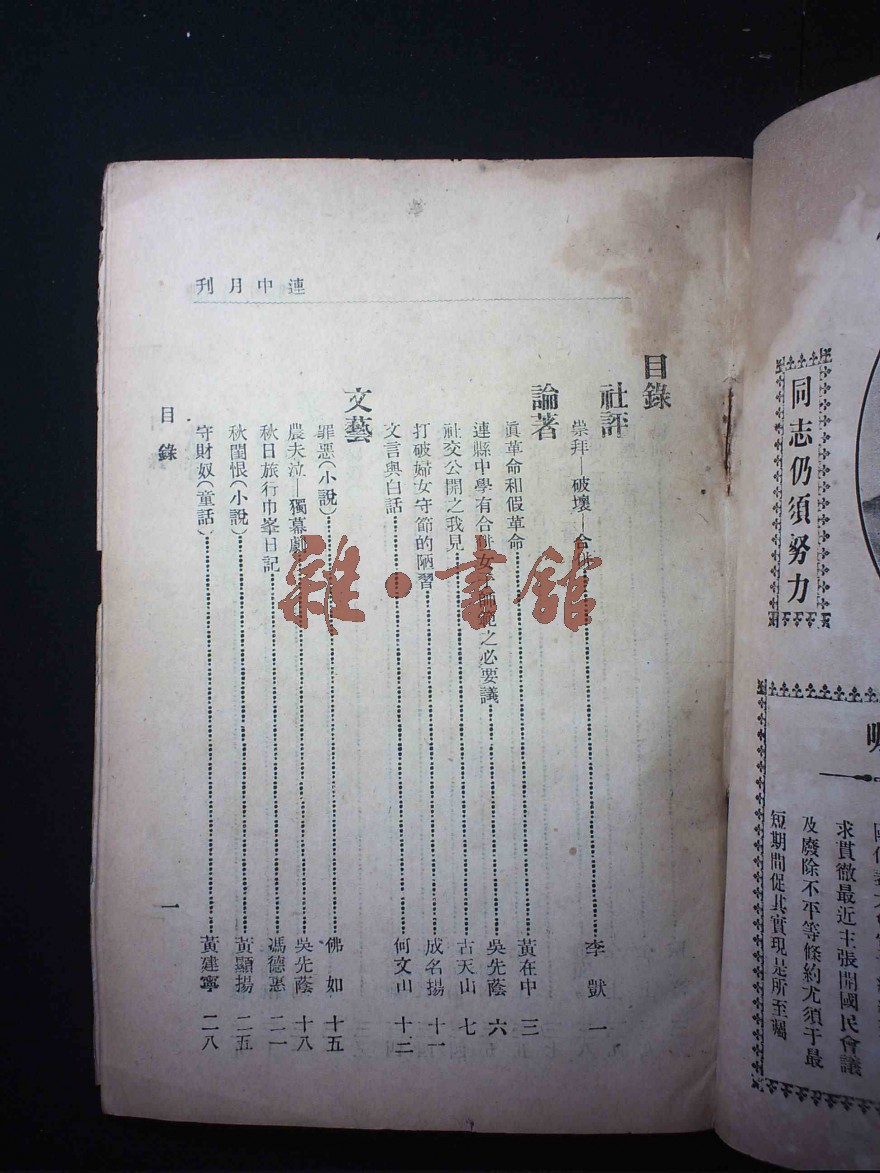 連中月刊
目錄
社評
崇拜—破壞—合併 李猷 一
論著
眞革命和假革命 黃在中 三
連縣中學有合併女子師範之必要議 吳先蔭 六
社交公開之我見 古天山 七
打破婦女守節的陋習 成名揚 十一
文言與白話 何文山 十二
文藝
罪惡(小說) 佛如 十五
農夫泣—獨幕劇 吳先蔭 十八
秋日旅行巾峯日記 馮德惡 二一
秋閨恨(小說) 黃顯揚 二五
守財奴(童話) 黃建寧 二八
目錄
一
雜·書館
同志仍須努力
求貫徹最近主張開國民會議
及廢除不平等條約尤須于最
短期間促其實現是所至囑